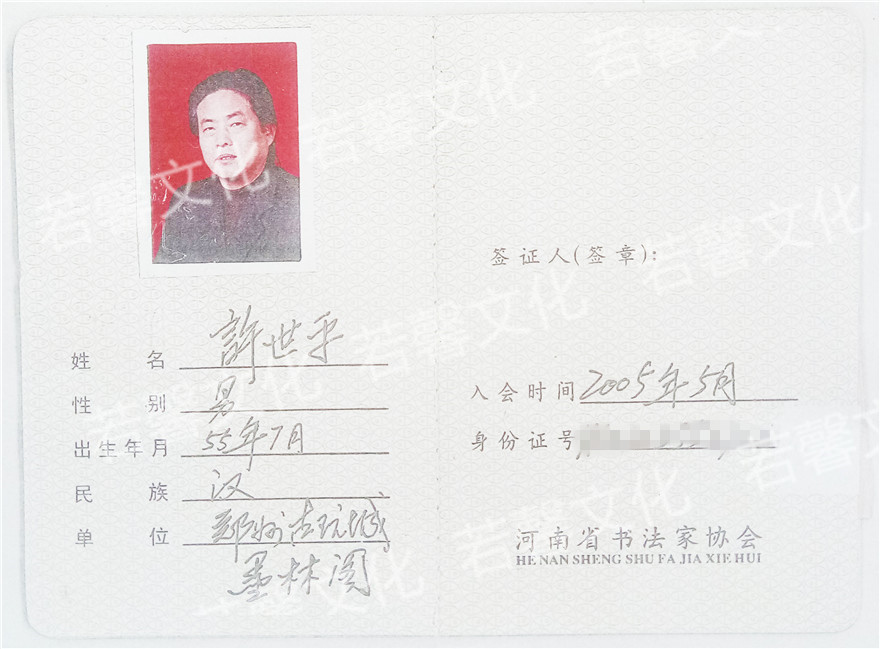 姓名 許世平
性别 男
出生年月 55年7月
民族 汉
单位 郑州古玩城
墨林阁
签证人(签章):
入会时间 2005年5月
身份证号
河南省书法家协会
HE NAN SHENG SHU FA JIA XIE HUI
若馨文化
若馨文化
若馨文化
若馨文化
若馨文化
若馨文化
若馨文化
若馨文化